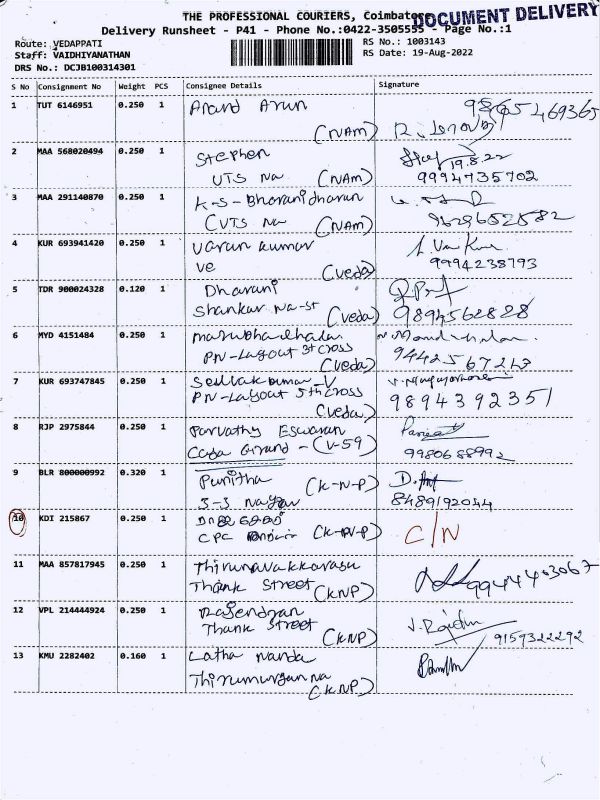 THE PROFESSIONAL COURIERS, Coimbatore
DOCUMENT DELIVERY
Delivery Runsheet - P41 - Phone No.:0422-3505555 - Page No.:1
Route: VEDAPPATI
RS No.: 1003143
Staff: VAIDHIYANATHAN
RS Date: 19-Aug-2022
DRS No.: DCJB100314301
S No Consignment No Weight PCS Consignee Details Signature
1 TUT 6146951 0.250 1 Anand Arun
(NAm)
2 MAA 568020494 0.250 1 Stephen 19.8.22
UTS Na (NAm) 9994735702
3 MAA 291140870 0.250 1 K-S-Bharanidharan
CVTS Na (NAm) 9629652582
4 KUR 693941420 0.250 1 Varun kumar
Ve (Veda) 9994238793
5 TDR 900024328 0.120 1 Dharani
Shankar Na-st (veda) 9894562828
6 MYD 4151484 0.250 1
PN-Layout 3rd Cross
(Veda) 9442567213
7 KUR 693747845 0.250 1
PN-Layout 5th Cross
(Veda) 9894392351
8 RJP 2975844 0.250 1 Parvathy Eswaran
Grand - (V-59) 9980688992
9 BLR 800000992 0.320 1 Punitha (K-N-P)
S-S Nagar 8489192044
10 KDI 215867 0.250 1 C/N
CPC
11 MAA 857817945 0.250 1 Thirunavakkarasu
Thank Street (KNP) 9944403067
12 VPL 214444924 0.250 1 Rajendran
Thank Street (KNP) 9159322292
13 KMU 2282402 0.160 1 Latha Nanda
Thirumurgan Na
(KNP)